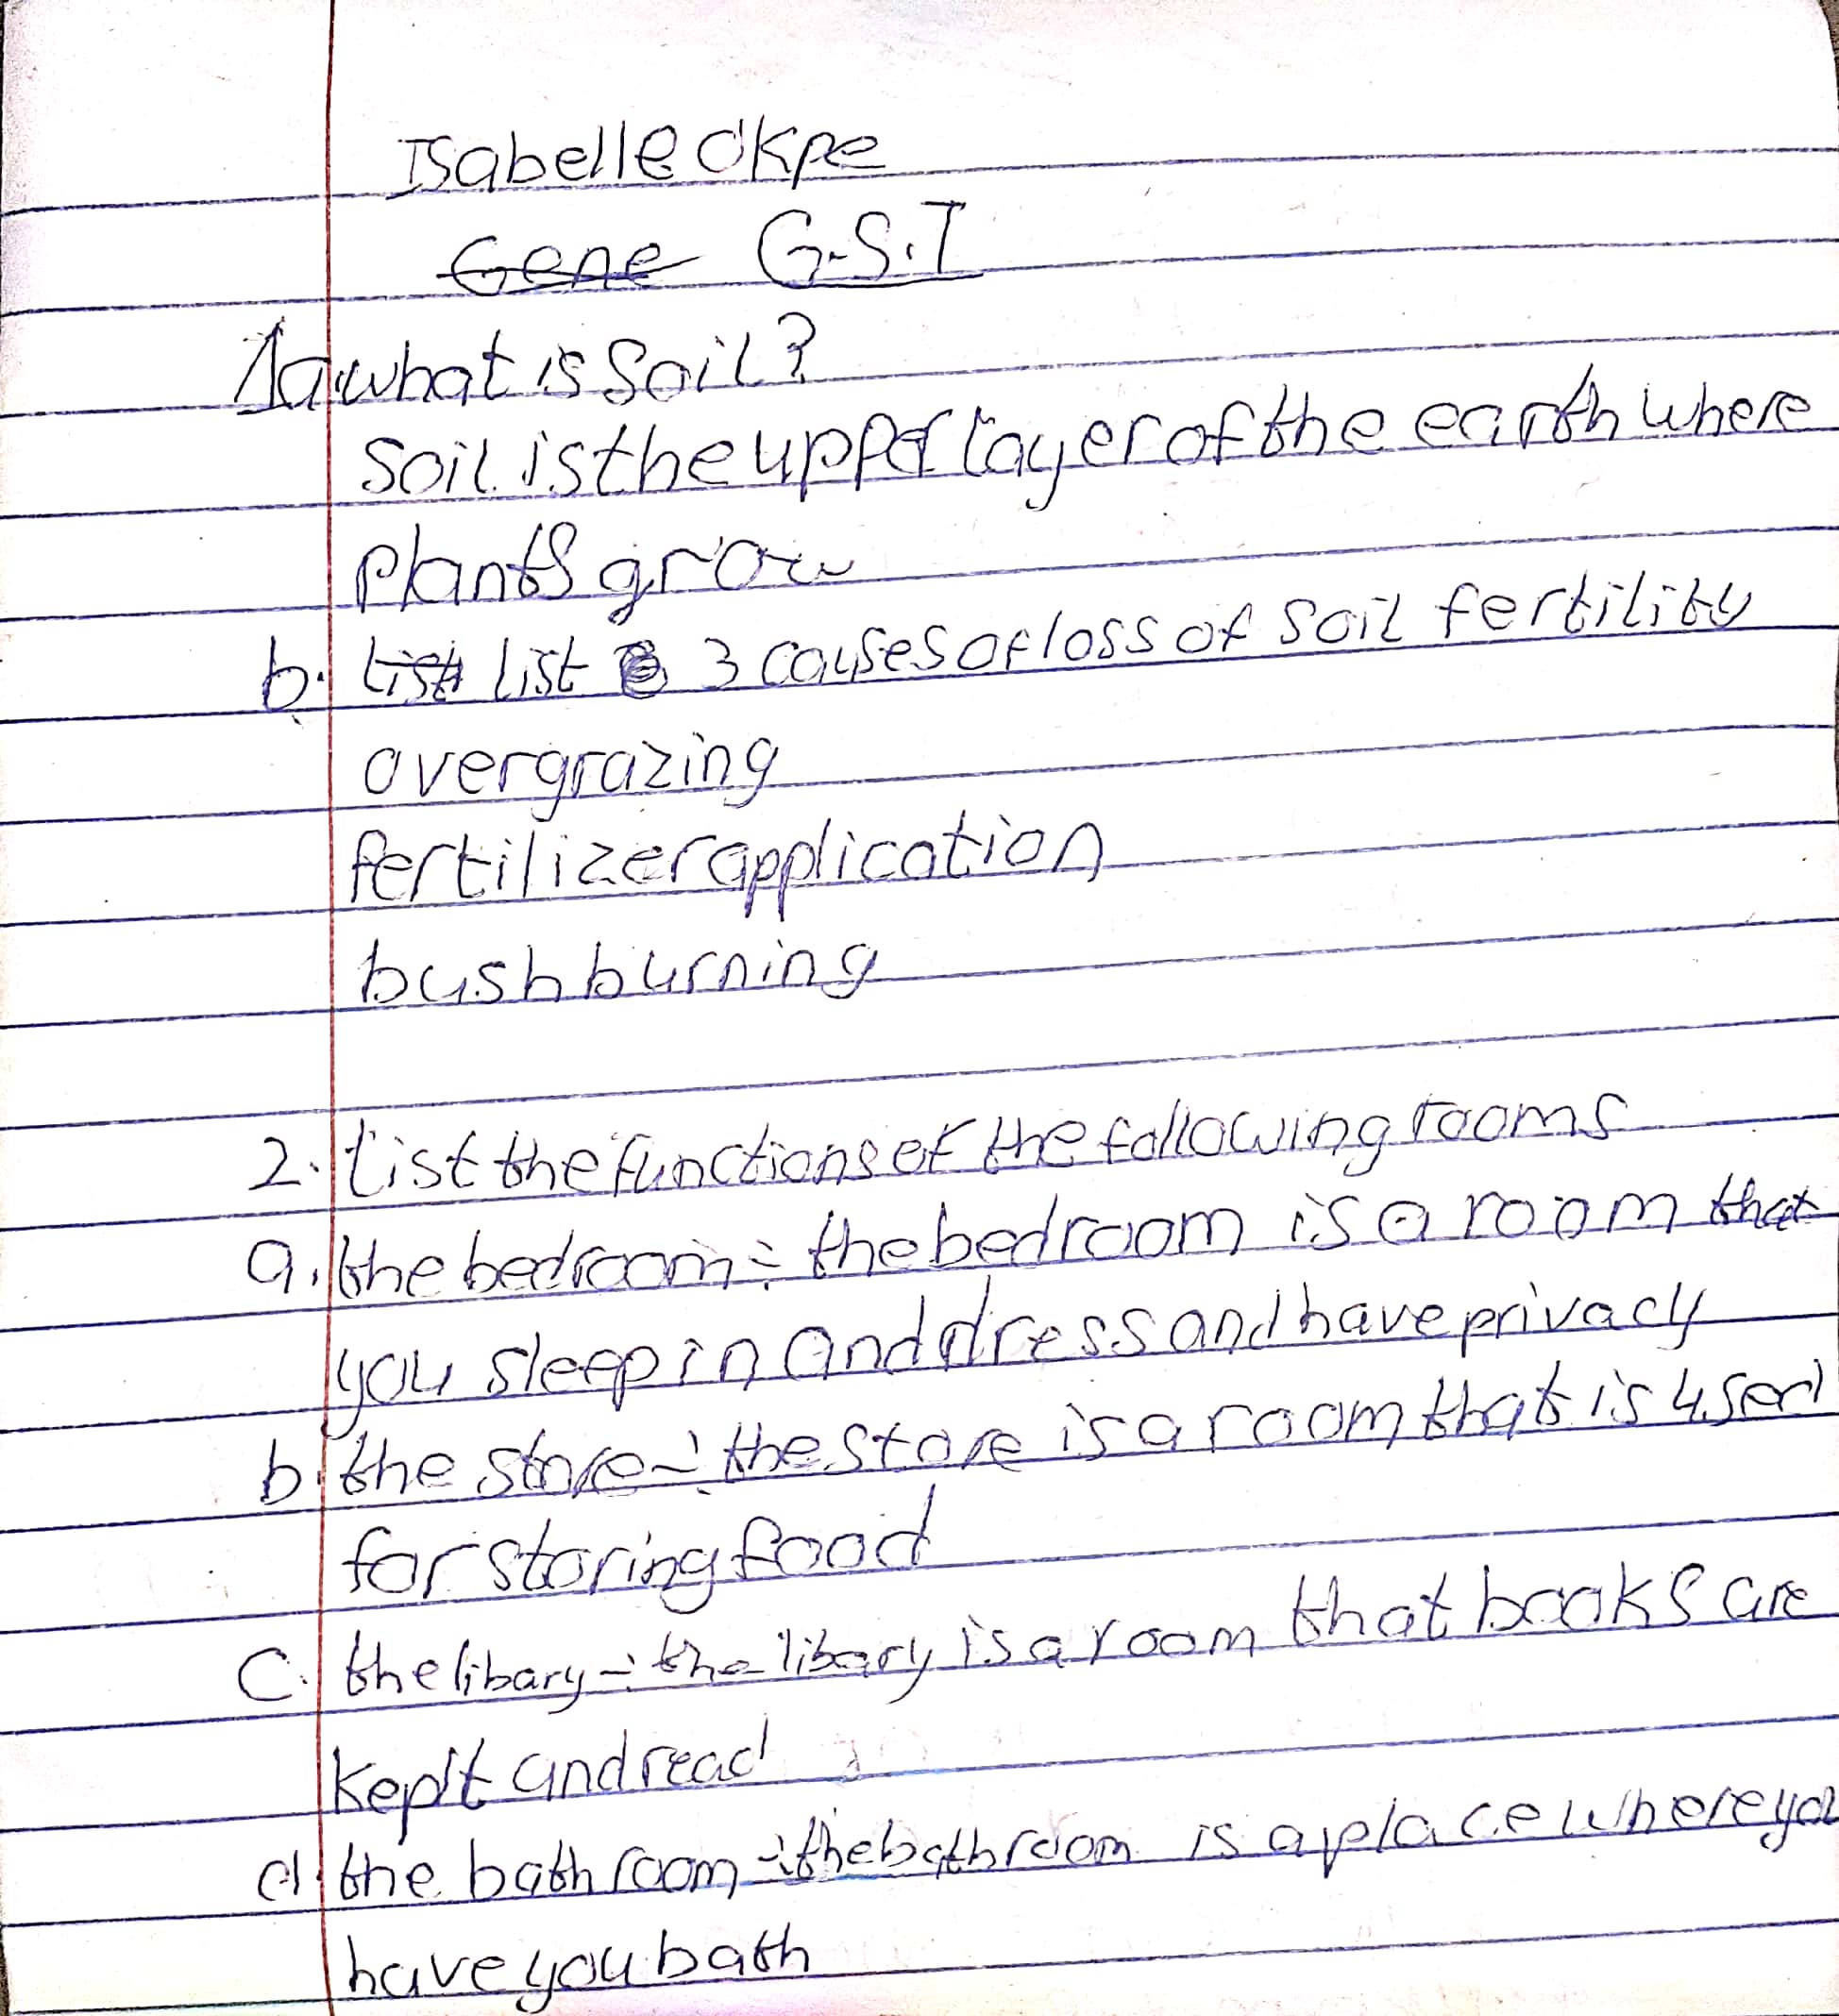 Isabelle Okpe
Gene G.S.T
1a what is soil?
Soil is the upper layer of the earth where
plants grow
b. list list 3 causes of loss of soil fertility
overgrazing
fertilizer application
bush burning
2. List the functions of the following rooms
a. the bedroom:- the bedroom is a room that
you sleep in and dress and have privacy
b. the store-: the store is a room that is used
for storing food
C. the libary-: the libary is a room that books are
kept and read
d. the bathroom-: the bathroom is a place where you
have you bath